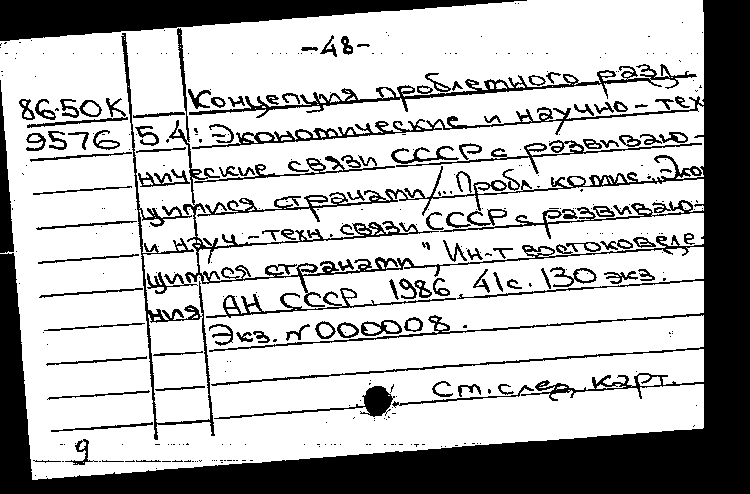 -48-
Концепция проблемного разд-
86-50К
9576 5.4: Экономические и научно-тех-
нические связи СССР с развиваю-
щимися странами /... Пробл. комис. „Экон
и науч.-техн. связи СССР с развиваю-
щимися странами", Ин-т востоковеде-
ния АН СССР. 1986. 41с. 130 экз.
Экз. №000008.
См. след. карт.
9